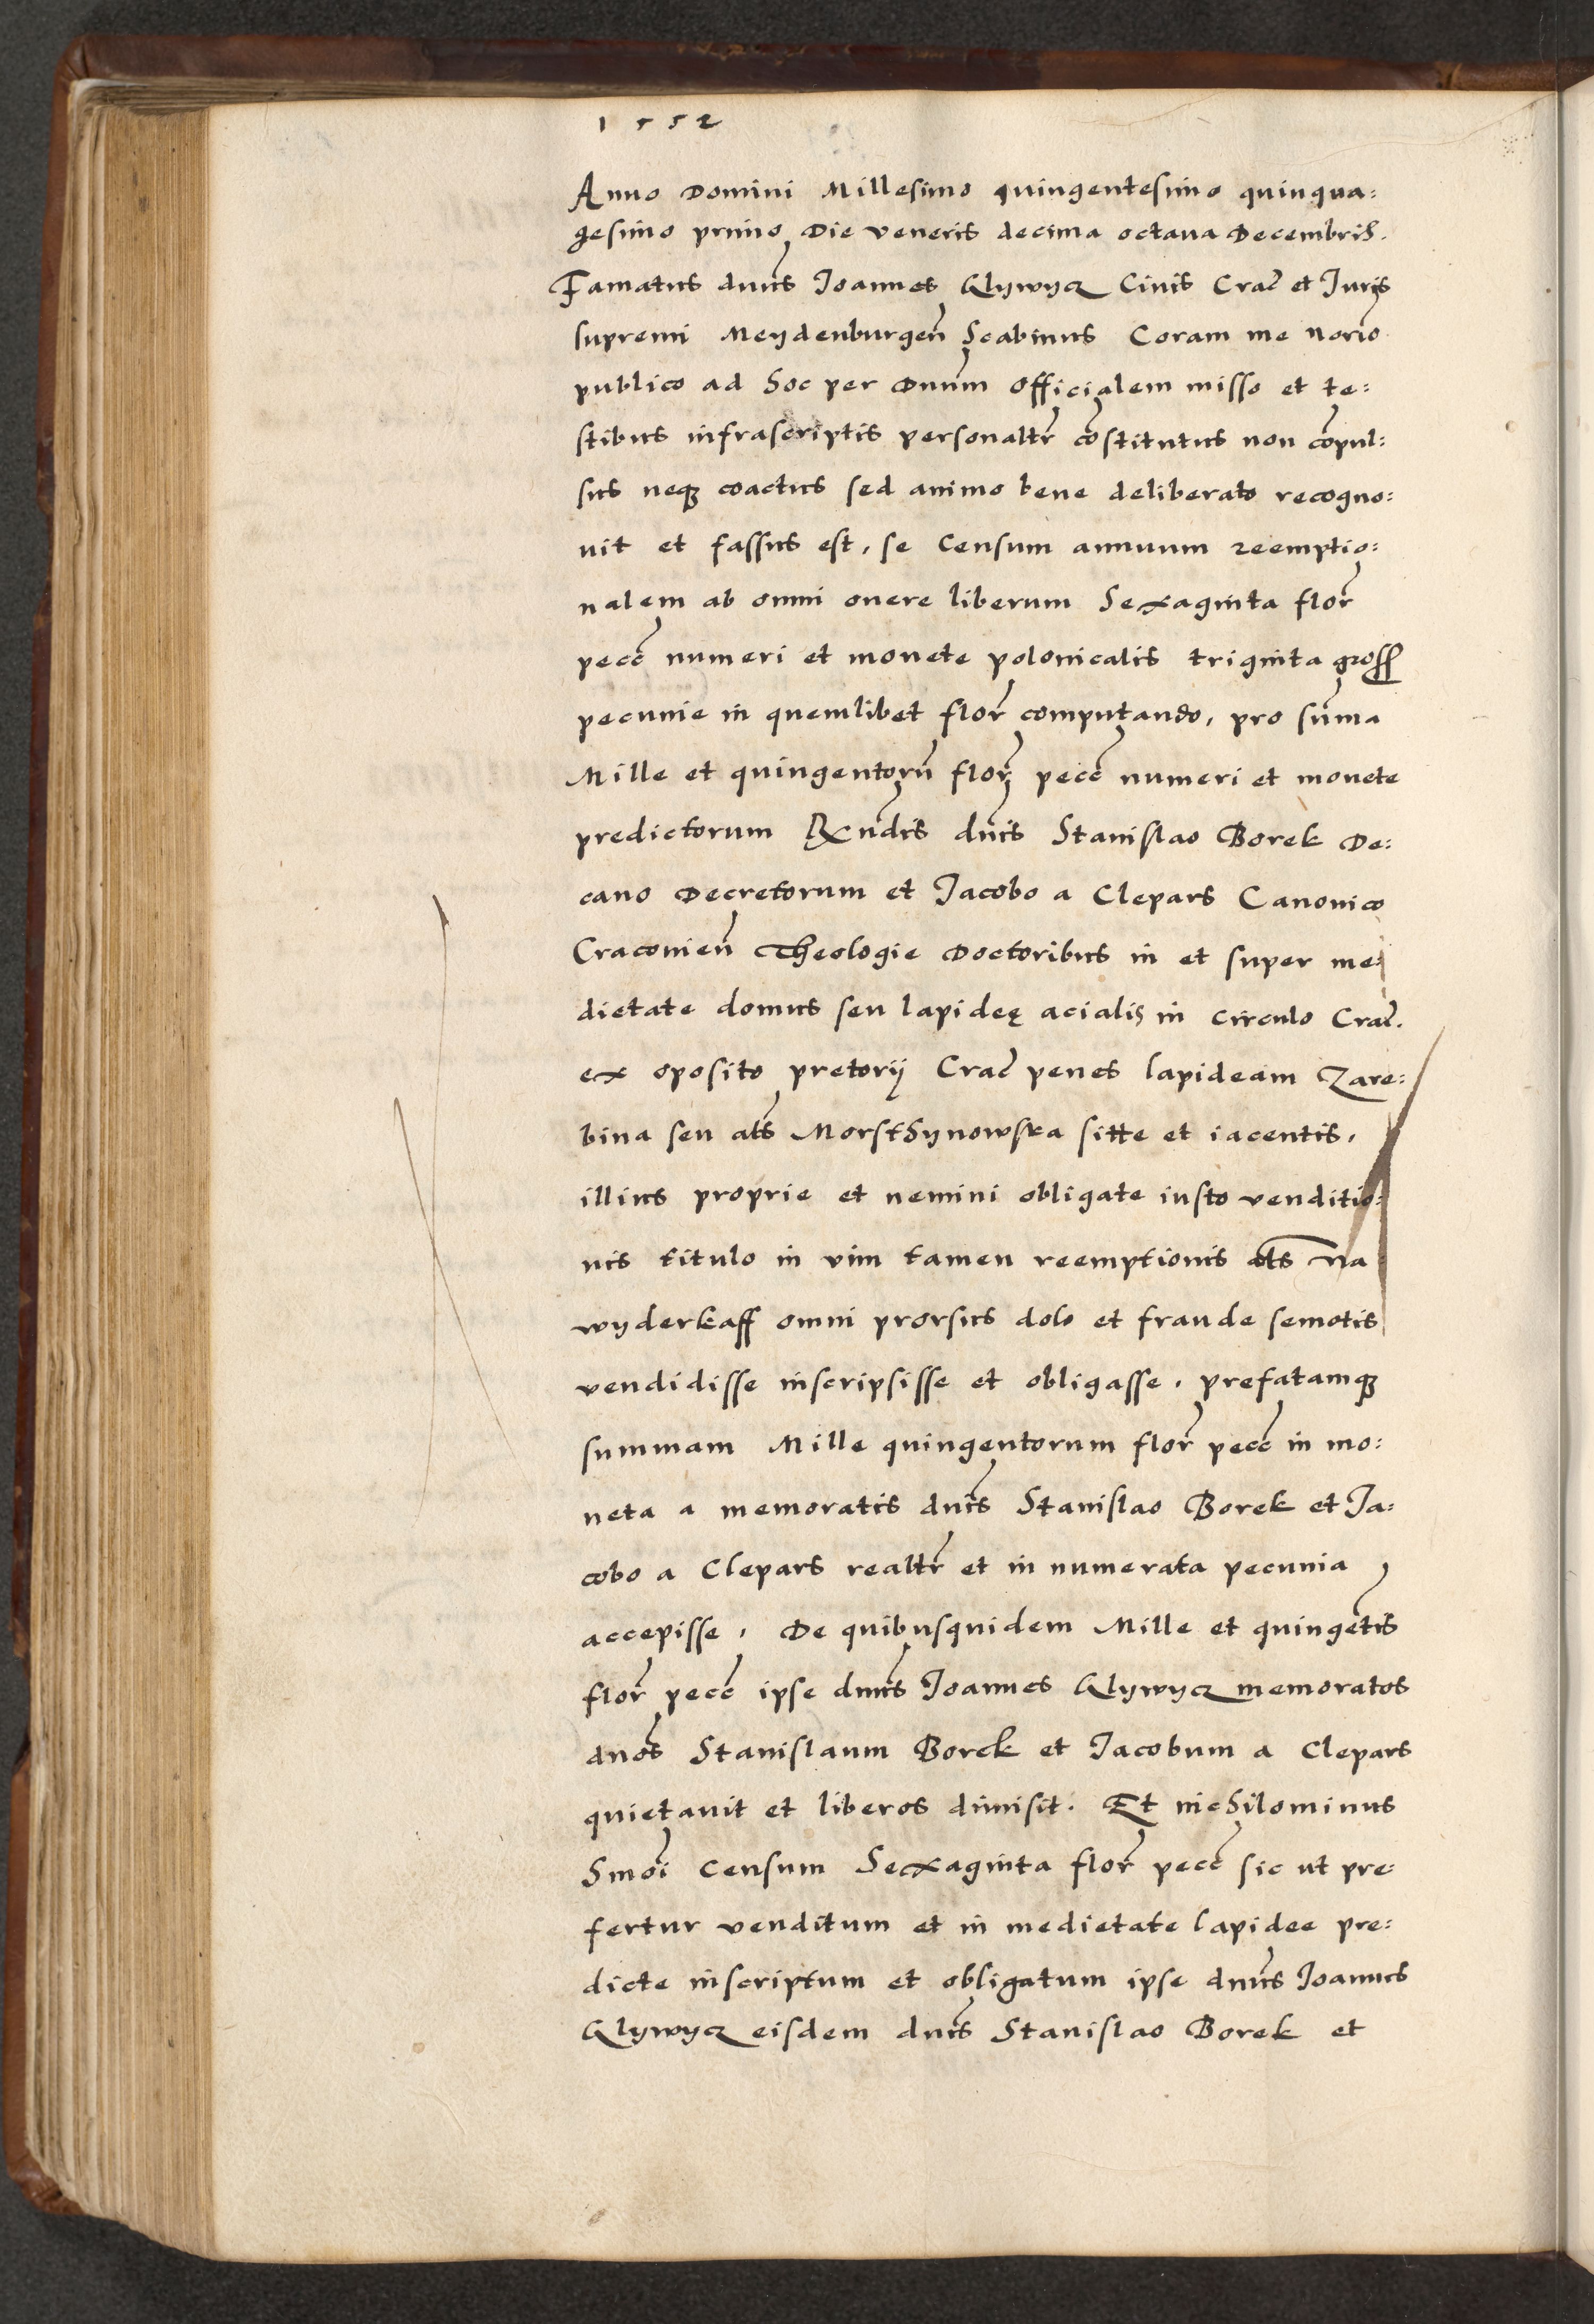 1552
Anno Domini Millesimo quingentesimo quinqua:
gesimo primo Die veneris decima octaua Decembris.
Famatus dnus Ioannes Glywycz Ciuis Crac et Iuris
supremi Meydenburgen Scabinus Coram me norio
publico ad hoc per Dnum Officialem misso et te:
stibus infrascriptis personaltr constitutus non compul:
sus neq coactus sed animo bene deliberato recogno:
uit et fassus est, se Censum annuum reemptio:
nalem ab omni onere liberum Sexaginta flor
pecc numeri et monete polonicalis triginta gross
pecunie in quemlibet flor computando, pro suma
Mille et quingentoru flor pecc numeri et monete
predictorum Rndis dnis Stanislao Borek De:
cano Decretorum et Jacobo a Clepars Canonico
Craconien Theologie Doctoribus in et super me:
dietate domus seu lapideę acialis in circulo Crac.
ex oposito pretorij Crac penes lapideam Zare:
bina seu als Morsthynowska sitte et iacentis,
illius proprie et nemini obligate iusto venditio:
nis titulo in vim tamen reemptionis als na
wyderkaff omni prorsus dolo et fraude semotis
vendidisse inscripsisse et obligasse. prefatamq
summam Mille quingentorum flor pecc in mo:
neta a memoratis dnis Stanislao Borek et Ja:
cobo a Clepars realtr et in numerata pecunia
accepisse. De quibusquidem Mille et quingetis
flor pecc ipse dnus Joannes Glywycz memoratos
dnos Stanislaum Borek et Jacobum a Clepars
quietauit et liberos dimisit. Et nichilominus
hmoi Censum Sexaginta flor pecc sic ut pre:
fertur venditum et in medietate lapidee pre:
dicte inscriptum et obligatum ipse dnus Ioannes
Glywycz eisdem dnis Stanislao Borek et